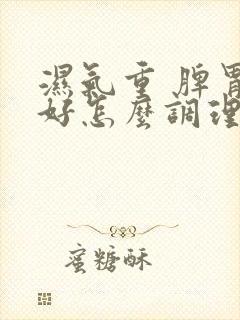 濕氣重 脾胃
好怎麼調理
蜜糖酥